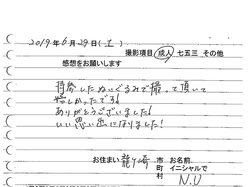 2019年6月29日(土)
撮影項目 成人 七五三 その他
感想をお願いします
持参したぬいぐるみで撮って頂いて
嬉しかったです!
ありがとうございました!
いい思い出になりました!
お住まい 龍ヶ崎 市町村 お名前 イニシャルで N.U